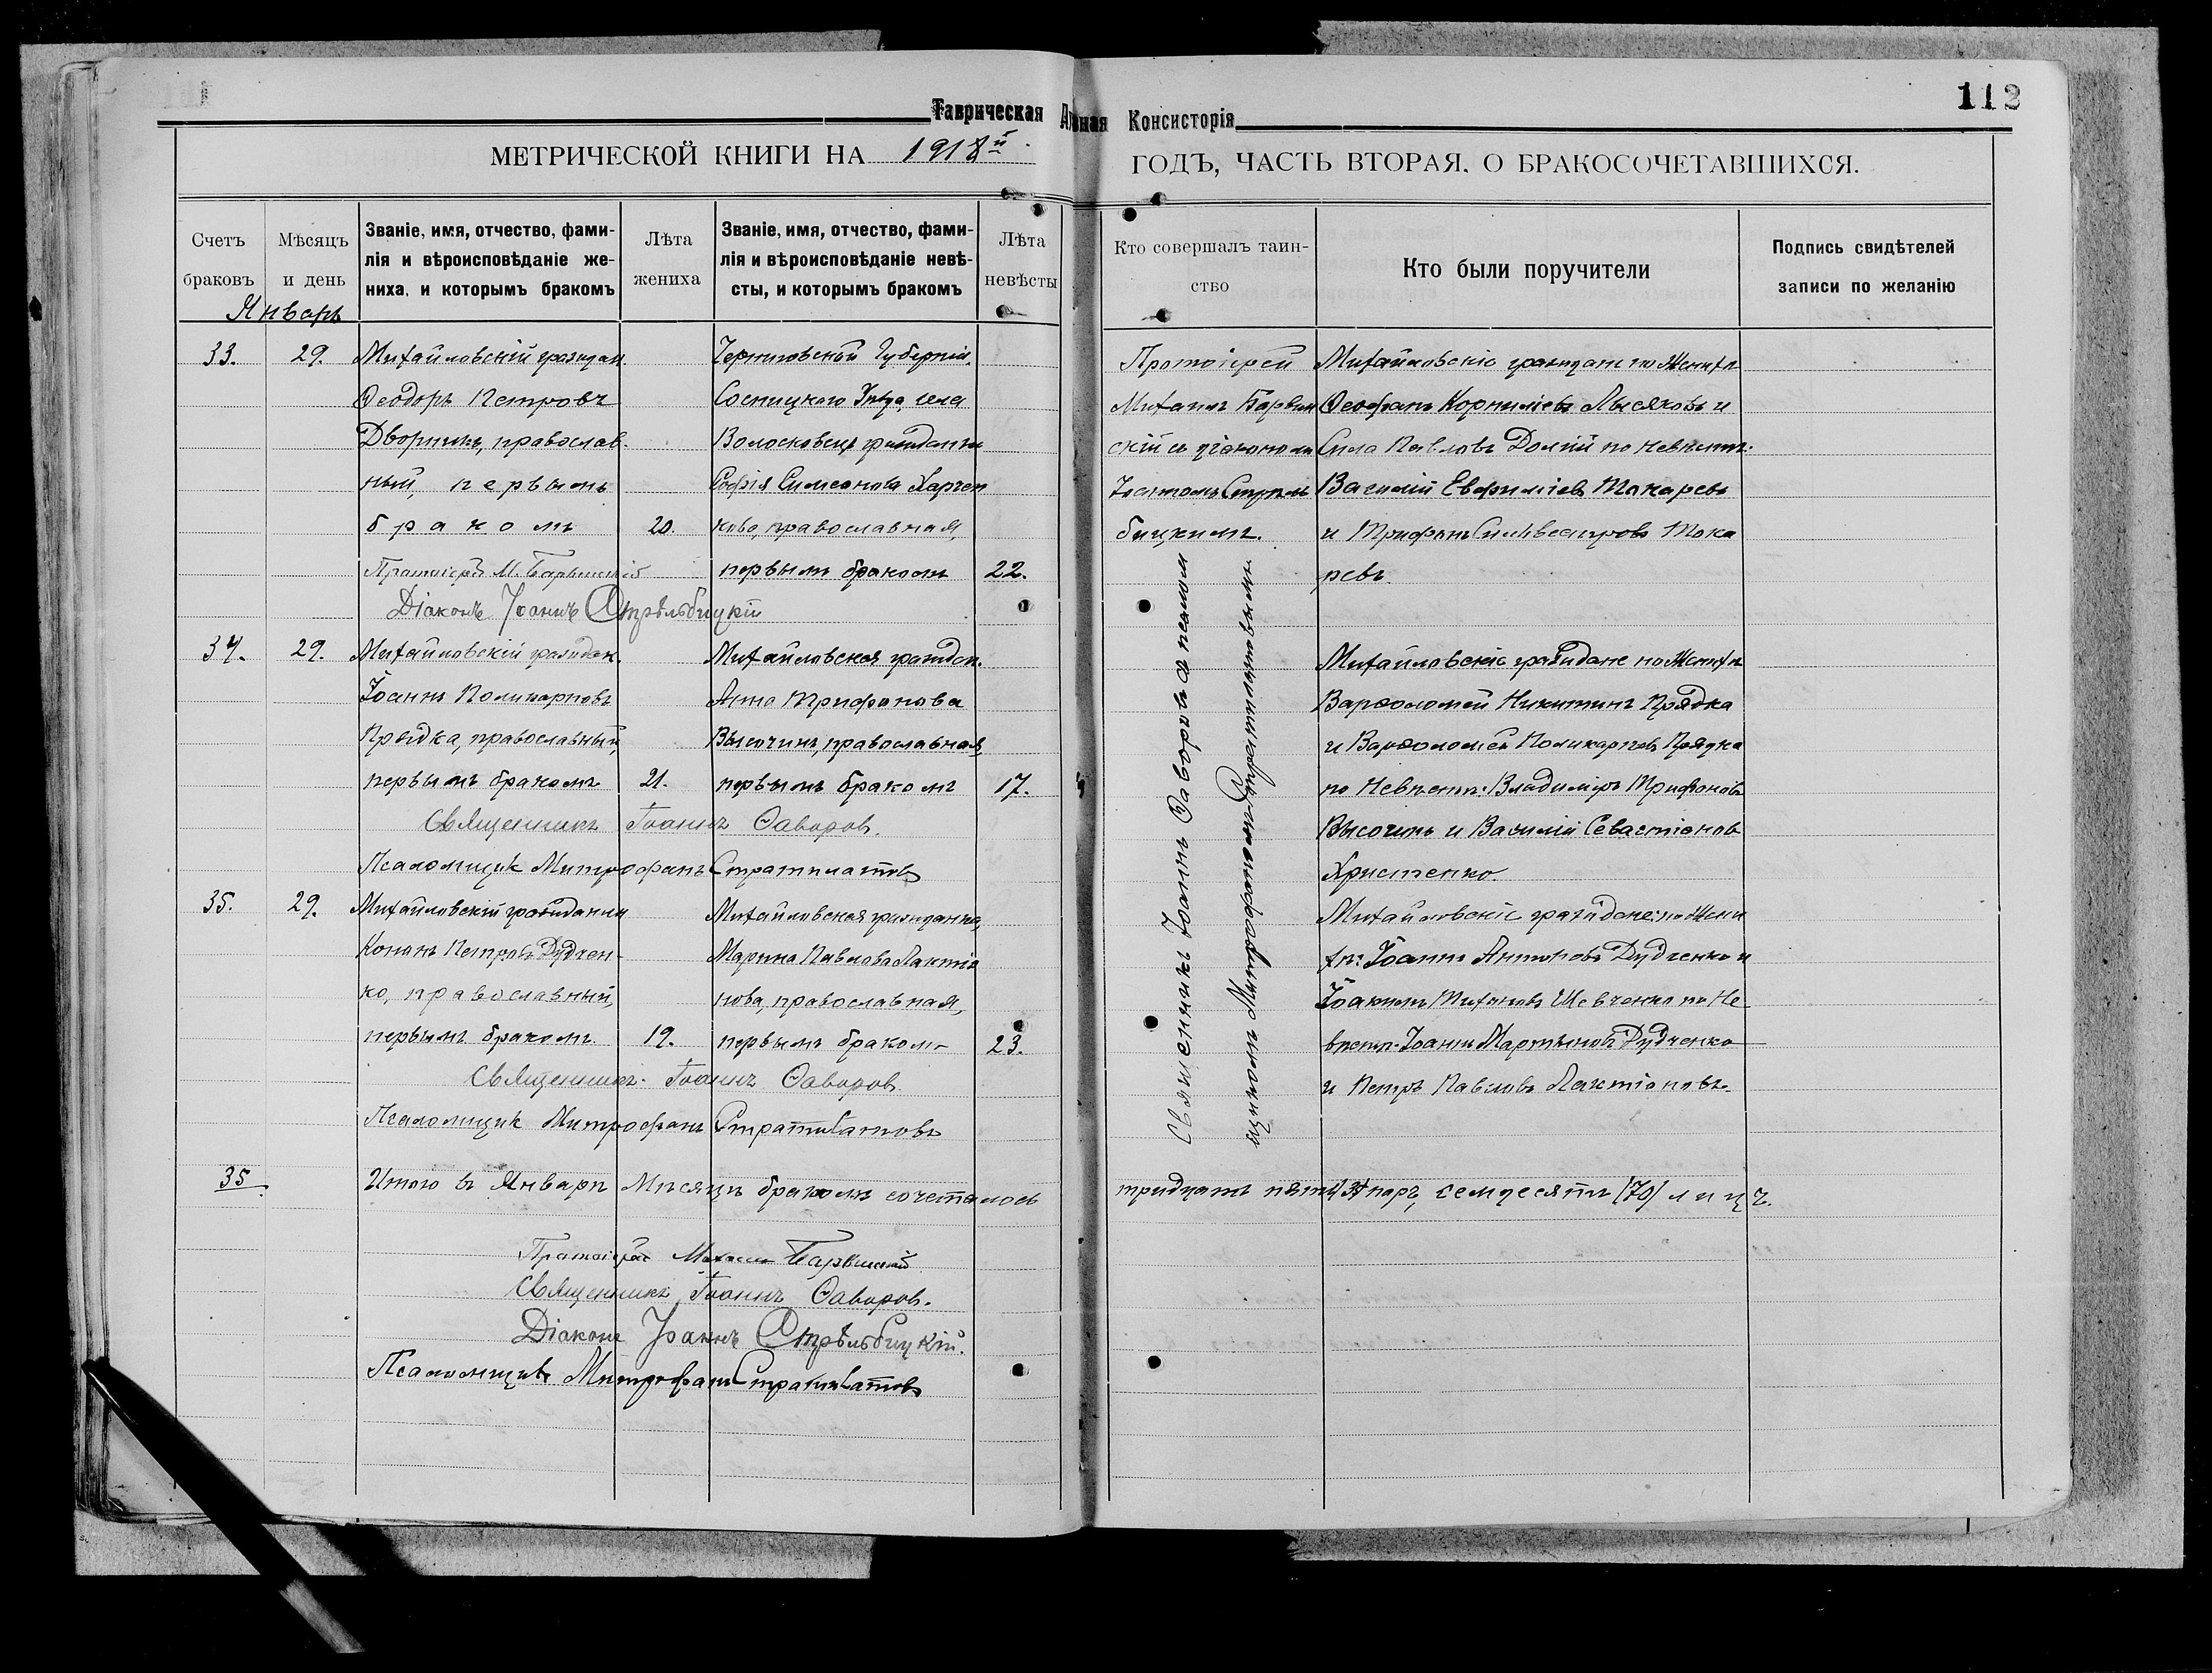 112
Таврическая Духовная Консисторія
МЕТРИЧЕСКОЙ КНИГИ НА 1918й
ГОДЪ, ЧАСТЬ ВТОРАЯ, О БРАКОСОЧЕТАВШИХСЯ.
Счетъ браковъ
Мѣсяцъ и день
Званіе, имя, отчество, фами-
лія и вѣроисповѣданіе же-
ниха, и которымъ бракомъ
Лѣта жениха
Званіе, имя, отчество, фами-
лія и вѣроисповѣданіе невѣ-
сты, и которымъ бракомъ
Лѣта невѣсты
Кто совершалъ таин-
ство
Кто были поручители
Подпись свидѣтелей
записи по желанію
Январь
33.
29.
Михайловскій граждан.
Ѳеодоръ Петровъ
Дворникъ, православ-
ный, первымъ
бракомъ
20.
Черниговской Губерніи
Сосницкаго Уѣзда, села
Волосковецъ гражданка
Софія Симеонова Харчен
кова, православная,
первымъ бракомъ
22.
Протоіерей
Михаилъ Барвин
скій съ діакономъ
Іоанномъ Стрѣль
бицкимъ.
Михайловскіе граждане по Женихѣ
Ѳеофанъ Корниліевъ Лысяковъ и
Сила Павловъ Долгій по невѣстѣ:
Василій Евфиміевъ Токаревъ
и Трифонъ Силивестровъ Тока
ревъ.
Протоіерей М. Барвинскій
Діаконъ Іоаннъ Стрѣльбицкій
34.
29.
Михайловскій граждан.
Іоаннъ Поликарповъ
Прядка, православный,
первымъ бракомъ
21.
Михайловская граждан.
Анна Трифонова
Высочинъ, православная,
первымъ бракомъ
17.
Священникъ Іоаннъ Ѳаворовъ съ псалом
щикомъ Митрофаномъ Стратилатовымъ.
Михайловскіе граждане по Женихѣ
Варѳоломей Никитинъ Прядка
и Варѳоломей Поликарповъ Прядка
по Невѣстѣ: Владиміръ Трифоновъ
Высочинъ и Василій Севастіановъ
Христенко.
Священникъ Іоаннъ Ѳаворов.
Псаломщик Митрофанъ Стратилатовъ
35.
29.
Михайловскій гражданин
Кононъ Петровъ Дудчен-
ко, православный,
первымъ бракомъ.
19.
Михайловская гражданка,
Марина Павлова Лактіо
нова, православная,
первымъ бракомъ
23.
Михайловскіе граждане: по Жени
хѣ: Іоаннъ Антоновъ Дудченко и
Іоакимъ Шевченко по Не-
вѣстѣ: Іоаннъ Мартыновъ Дудченко
и Петръ Павловъ Лактіоновъ.
Священникъ Іоаннъ Ѳаворов.
Псаломщик Митрофанъ Стратилатовъ
35
Итого въ Январѣ Мѣсяцѣ бракомъ сочеталось тридцать пять паръ, семдесятъ (70) лицъ.
Протоіерей Михаилъ Барвинскій
Священникъ Іоаннъ Ѳаворов.
Діаконъ Іоаннъ Стрѣльбицкій.
Псаломщикъ Митрофанъ Стратилатовъ